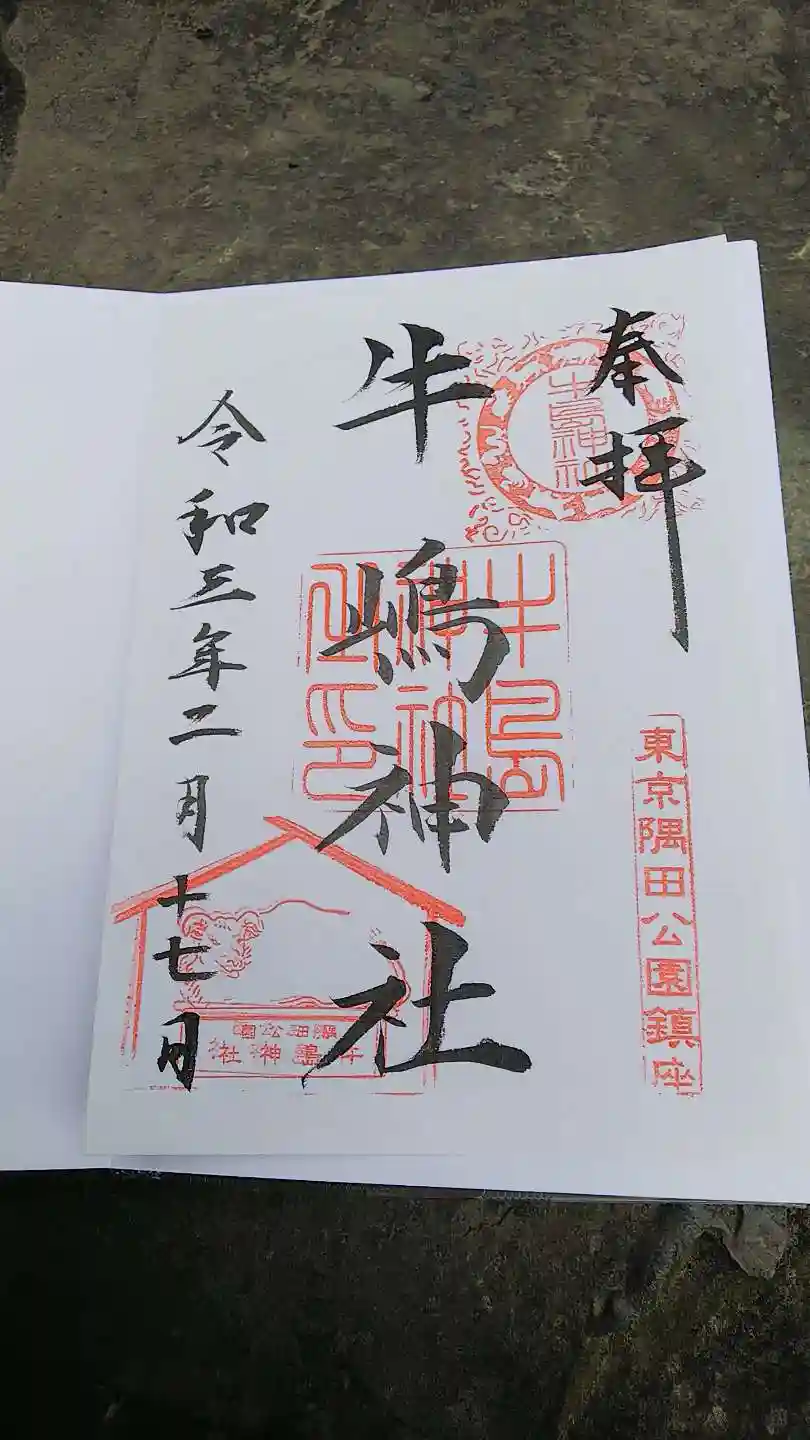 奉拝
牛島神社
東京隅田公園鎮座
牛嶋神社
牛島神社之印
隅田公園
牛嶋神社
令和三年二月十七日